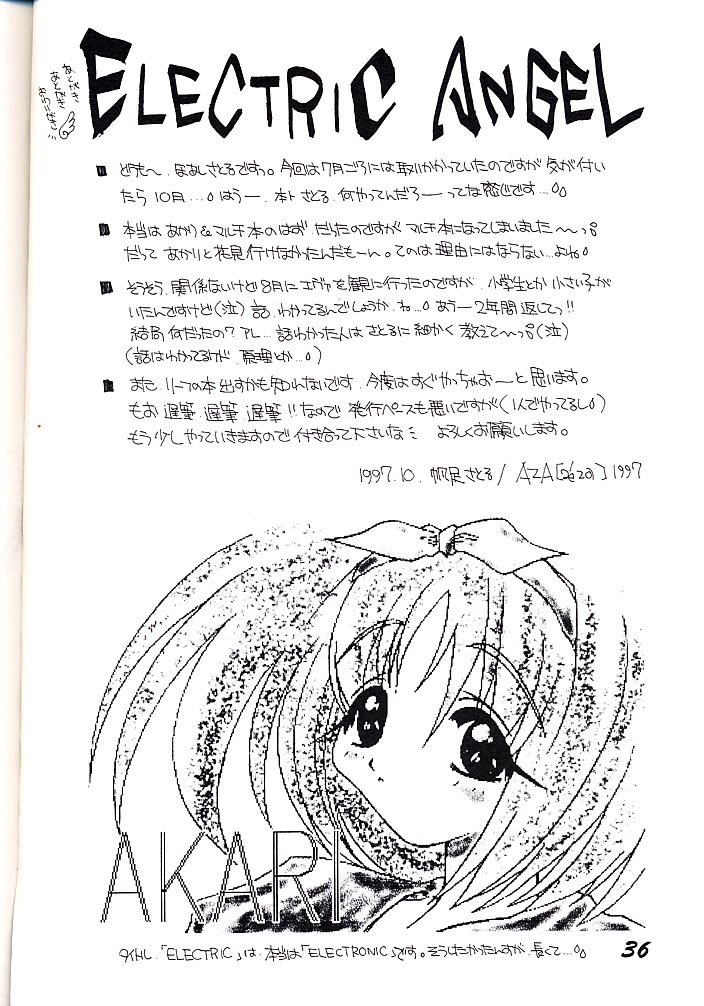 ELECTRIC ANGEL
あとがき
あとがき
どうもー、ほあしさとるですっ。今回は7月ごろには取りかかっていたのですが 気が付い
たら 10月…。はうー、本ト さとる、何やってんだろーってな感じです…。
本当は あかり&マルチ本のはず だったのですが マルチ本になってしまいました〜っ。
だって あかりと花見行けなかったんだもーん。てのは 理由にはならない…よね。
そうそう、関係ないけど 8月に エヴァを観に行ったのですが、小学生とか 小さい子が
いたんですけど(泣) 話、わかってるんでしょうか、ね…。あうー 2年間返してっ!!
結局 何だったの? アレ… 話わかった人は さとるに 細かく 教えて〜っ(泣)
(話はわかってるけど、原理とか…。)
また リーフの本 出すかも知れないです、今度はすぐやっちゃおーと思います。
もお 遅筆、遅筆 遅筆!! なので 発行ペースも悪いですが(1人でやってるし)
もう少しやっていきますので 付き合って下さいな よろしくお願いします。
1997.10. 帆足さとる/ AZA 1997
AKARI
タイトル、「ELECTRIC」は、本当は「ELECTRONIC」です。そうしたかったんすが、長くて…。
36